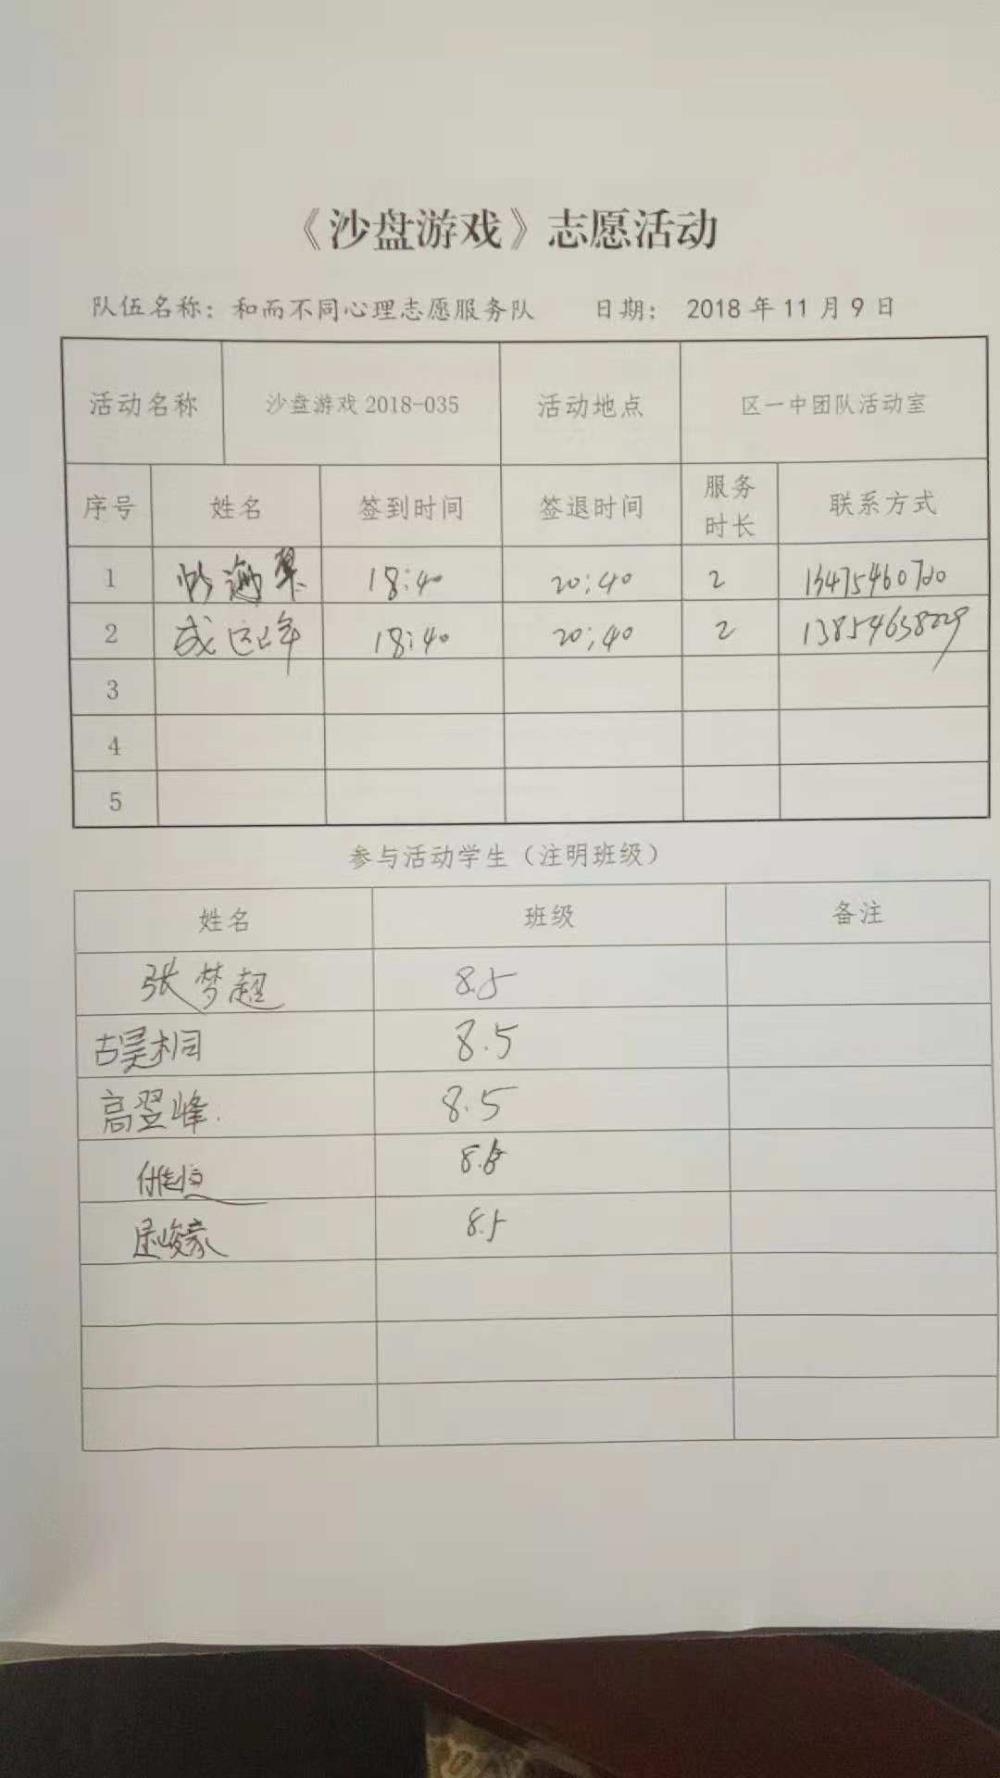 《沙盘游戏》志愿活动
队伍名称：和而不同心理志愿服务队 日期： 2018 年 11 月 9 日
活动名称 沙盘游戏 2018-035 活动地点 区一中团队活动室
序号 姓名 签到时间 签退时间 服务时长 联系方式
1 18:40 20:40 2
2 18:40 20:40 2
3
4
5
参与活动学生（注明班级）
姓名 班级 备注
张梦超 8.5
古昊桐 8.5
高翌峰. 8.5
8.5